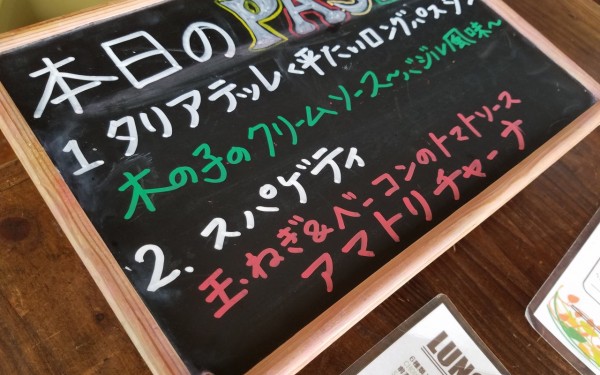 本日のPAS
1 タリアテッレ<平たいロングパスタ>
木の子のクリームソース〜バジル風味〜
2. スパゲティ
玉ねぎ&ベーコンのトマトソース
アマトリチャーナ
LUN